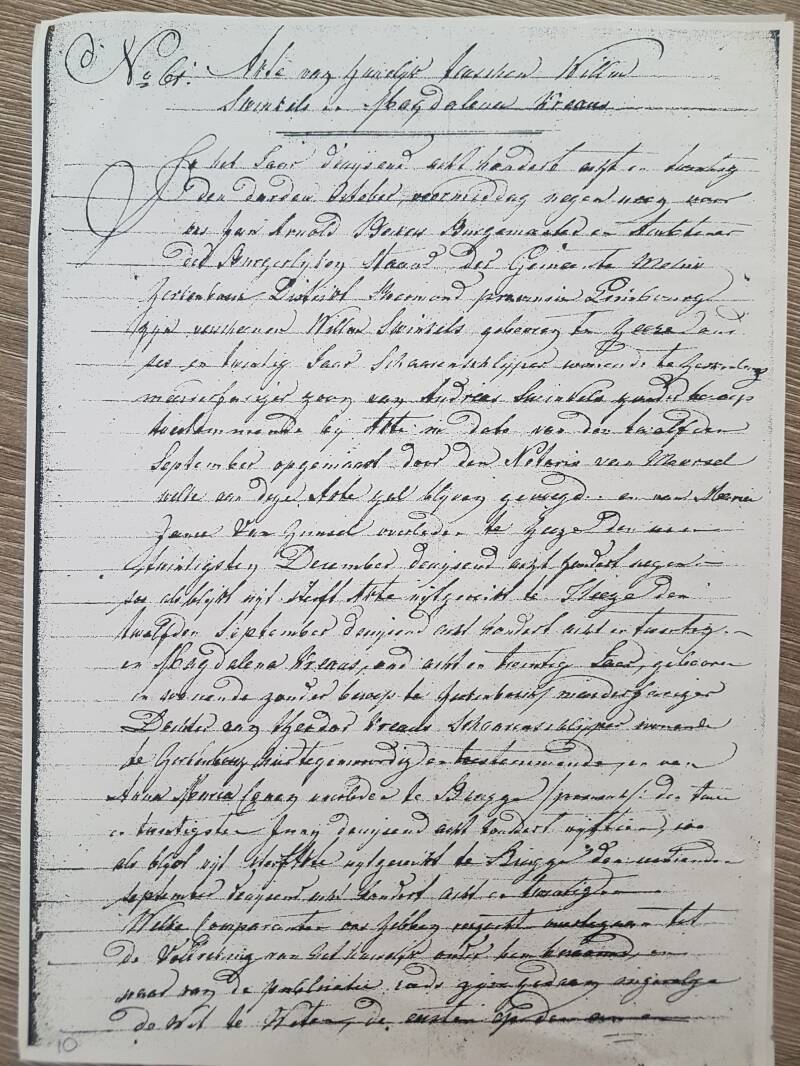 No 61. Akte van Huwelyk tusschen Willem
Swinkels en Magdalena Kreaus
In het Jaar duyzend acht hondert acht en twintig
den darden October, voormiddag negen uuren voor
ons Jan Arnold Burgemeester en Ambtenaar
des Burgerlyken Staand der Gemeente
District Roermond provincie Limbourg
zyn verschenen Willem Swinkels gebooren te Heeze oud
ses en twintig Jaar Schaarenschlyper woonende te
meerderjariger zoon van Andreas Swinkels zonder beroep
toestemmende by Akte in dato van den twalfden
September opgemaakt door den Notaris van Moorsel
welke aan deze Akte zal blyven gevoegd en van Maria
Jana Van overleden te Heeze den
twintigsten December duyzend acht hondert negen
soo als blykt uyt Sterft Akte uytgereikt te Heeze den
twalfden September duyzend acht hondert acht en twintig
en Magdalena Kreaus, oud acht en twintig Jaar, gebooren
en woonende zonder beroep te meerderjariger
Dochter van Theodor Kreaus Schaarenschlyper woonende
te hier tegenwoordig en toestemmende, en van
Anna Maria overleden te Brugge den twee
en twintigsten Juny duyzend acht hondert vyftien, soo
als blykt uyt Sterftakte uytgereikt te Brugge den
september duyzend acht hondert acht en twintig
Welke Comparanten ons hebben versocht overtegaan tot
de Voltrekking van het huwelyk onder hen beraamd, en
waar van de publicatie reeds zyn gedaan ingevolge
de Wet te Weten, de eersten op den
10